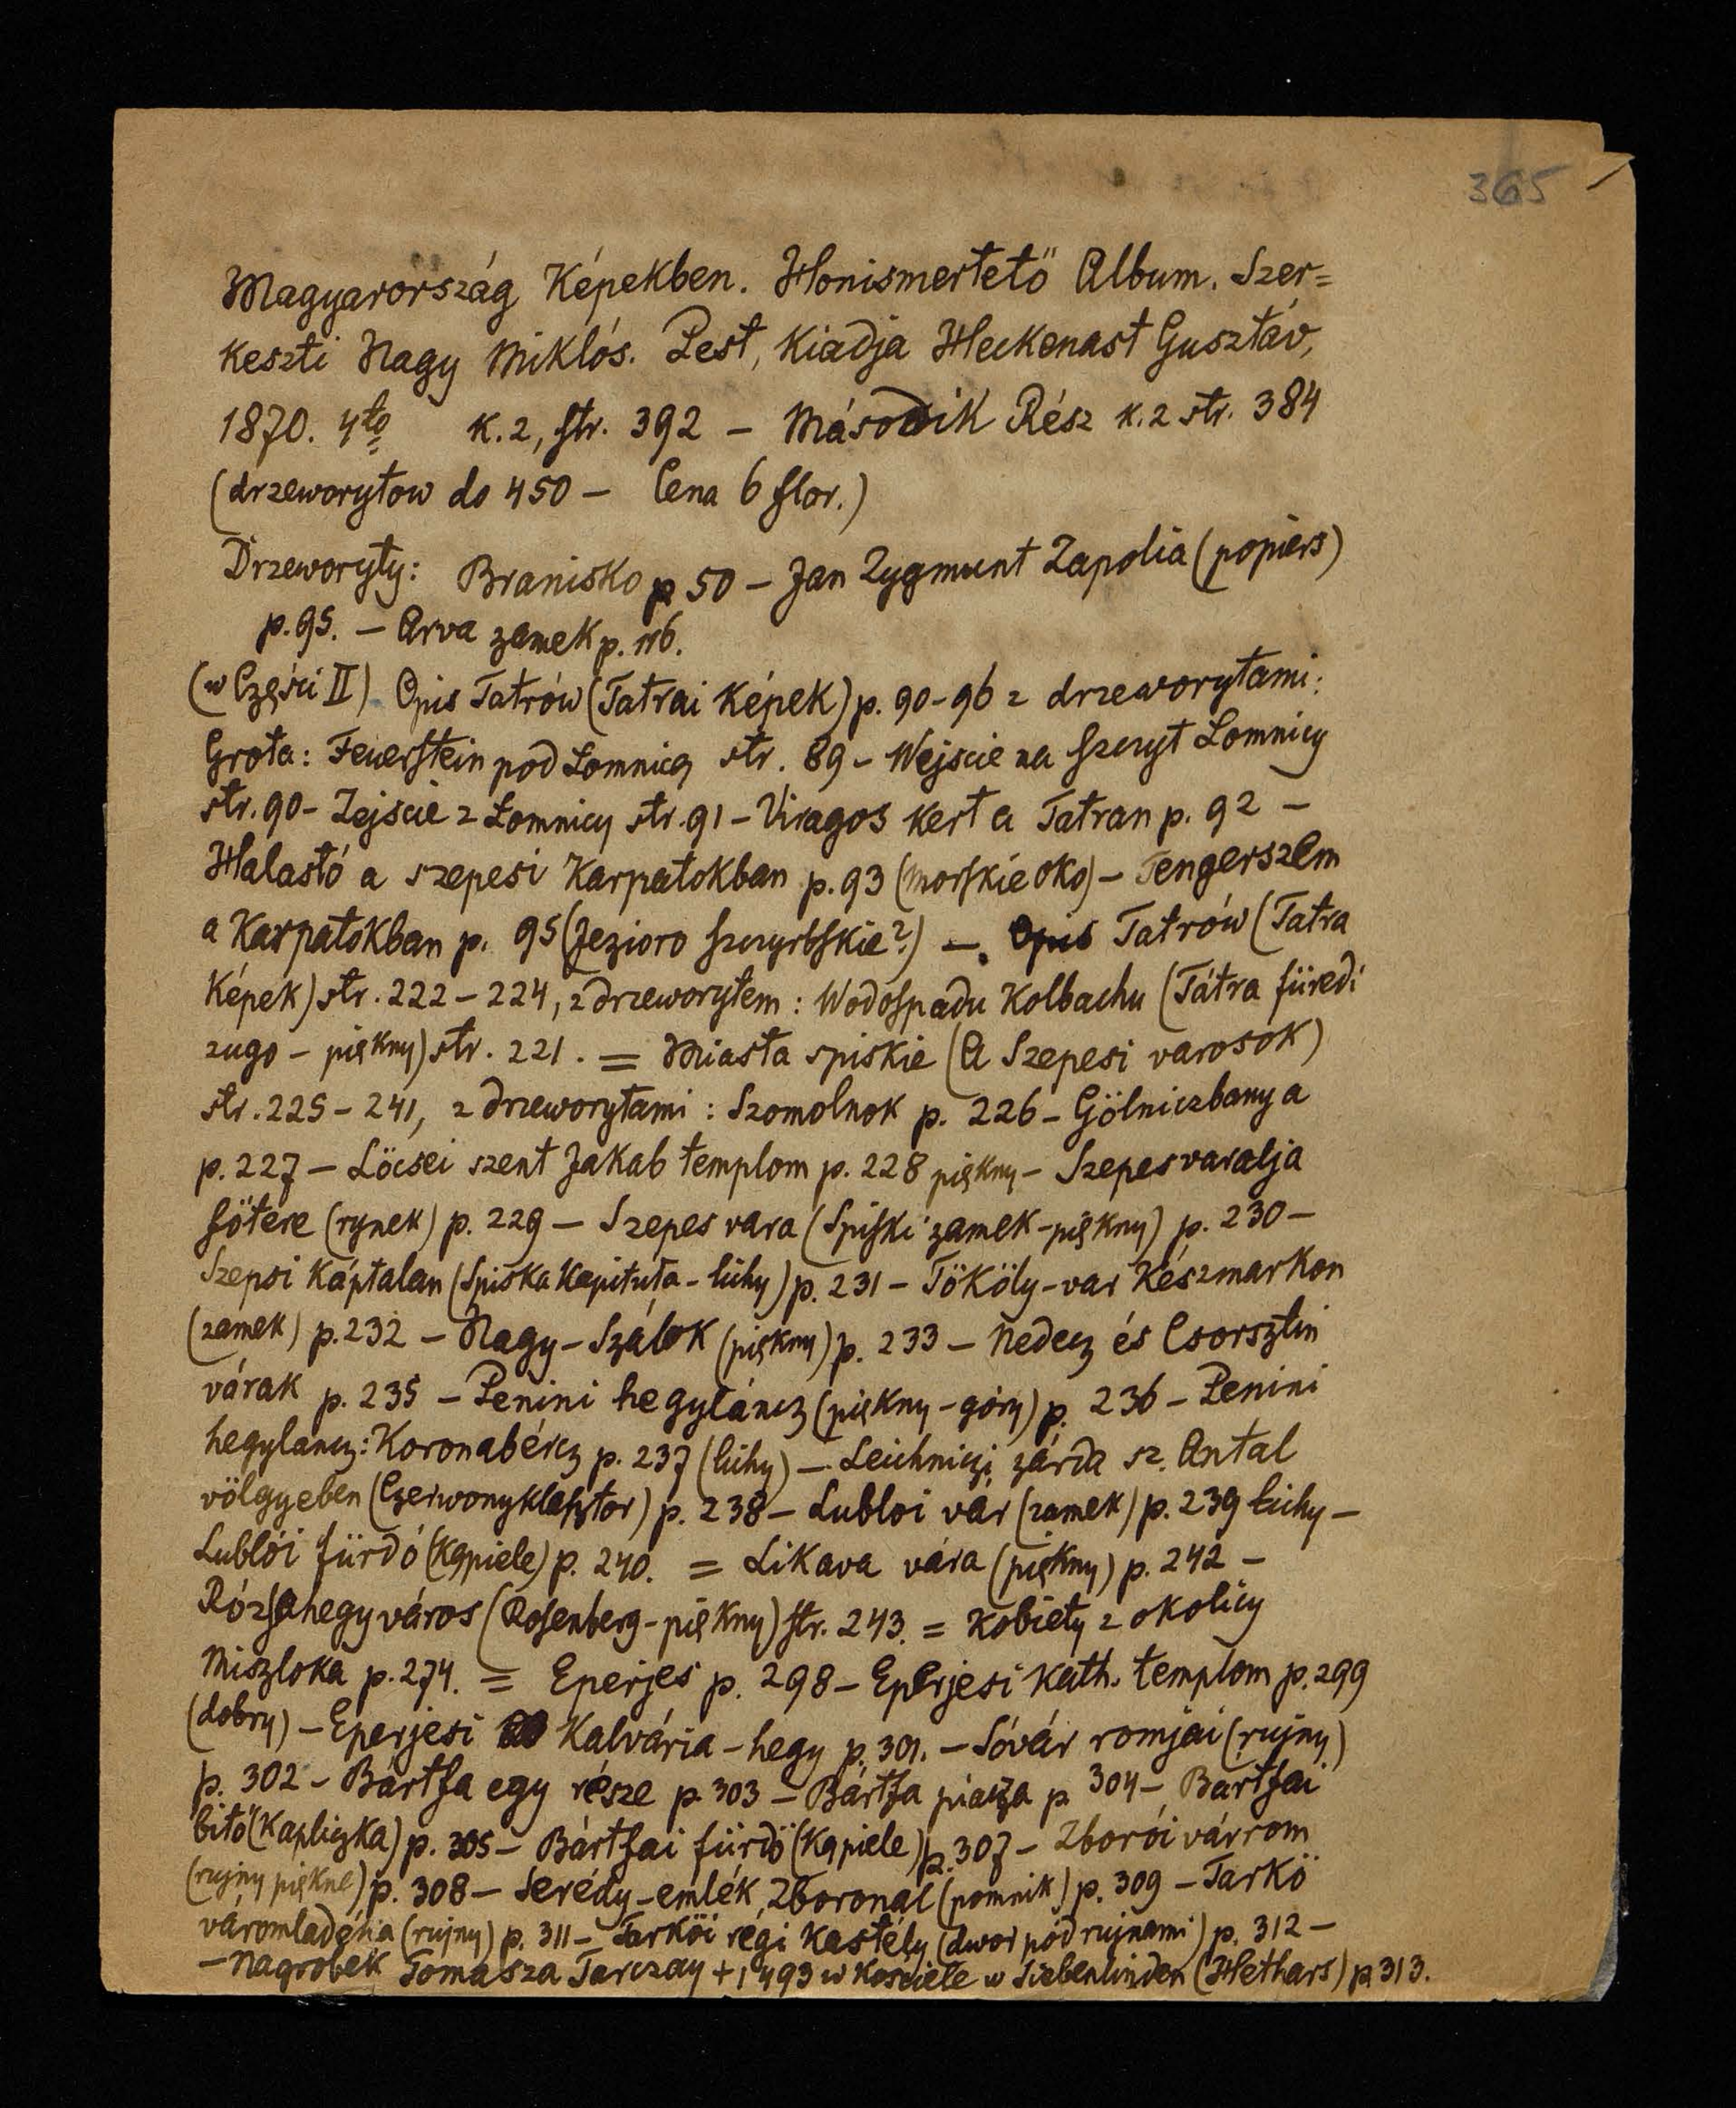 365
Magyarország Képekben. Honismertető Album. Szer=
keszti Nagy Miklós. Pest, Kiadja Heckenast Gusztáv,
1870. 4to k. 2, str. 392 – Második Rész k. 2 str. 384
(drzeworytow do 450 – Cena 6 flor.)
Drzeworyty: Branisko p 50 – Jan Zygmunt Zapolia (popiers)
p. 95. – Arva zamek p. 116.
(w Części II) Opis Tatrów (Tatrai Képek) p. 90-96 z drzeworytami:
Grota: Feuerstein pod Łomnicą str. 89 – Wejscie na szczyt Łomnicy
str. 90 – Zejscie z Łomnicy str. 91 – Viragos kert a Tatran p. 92 –
Halastó a szepesi Karpatokban p. 93 (morskie oko) – Tengerszem
a Karpatokban p. 95 (Jezioro szczyrbskie?) – Opis Tatrów (Tatra
Képek) str. 222 – 224, z drzeworytem: Wodospadu Kolbachu (Tátra füredi
zugo – piękny) str. 221. = Miasta spiskie (A Szepesi varosok)
str. 225 – 241, z drzeworytami: Szomolnok p. 226 – Gölniczbanya
p. 227 – Löcsei szent Jakab templom p. 228 piękny – Szepesvaralja
főtere (rynek) p. 229 – Szepes vara (Spiski zamek – piękny) p. 230 –
Szepsi Káptalan (Spiska Kapituła – lichy) p. 231 – Tököly-var Késmarkon
(zamek) p. 232 – Nagy-Szálok (piękny) p. 233 – Nedecz és Csorsztin
várak p. 235 – Penini hegyláncz (piękny – góry) p. 236 – Penini
hegylancz: Koronabércz p. 237 (lichy) – Leichniczi zárda sz. Antal
völgyeben (Czerwonyklasztor) p. 238 – Lubloi vár (zamek) p. 239 lichy –
Lublói fürdó (kąpiele) p. 240. = Likava vára (piękny) p. 242 –
Rózsahegy város (Rosenberg – piękny) str. 243. = Kobiety z okolicy
Miszloka p. 274. = Eperjes p. 298 – Eperjesi kath. templom p. 299
(dobry) – Eperjesi Kalvária-hegy p. 301. – Sóvár romjai (rujny)
p. 302 – Bártfa egy része p 303 – Bártfa piacza p 304 – Bartfai
bitó (Kapliczka) p. 305 – Bártfai fürdő (kąpiele) p. 307 – Zborói várrom
(rujny piękne) p. 308 – Serédy-emlék Zboronál (pomnik) p. 309 – Tarkö
váromladéka (rujny) p. 311 – Tarköi régi kastély (dwor pod rujnami) p. 312 –
– Nagrobek Tomasza Tarczay + 1493 w kosciele w Siebenlinden (Hethars) p 313.